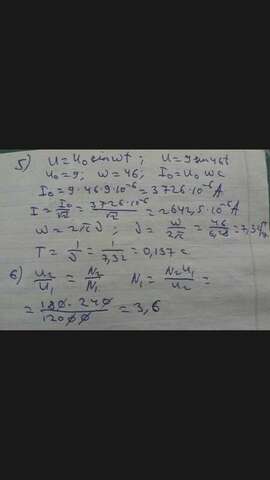 5) U = U₀ sin ωt ; U = 9 sin 46t
U₀ = 9 ; ω = 46 ; I₀ = U₀ ω c
I₀ = 9 · 46 · 9 · 10⁻⁶ = 3726 · 10⁻⁶ A
I = I₀/√2 = 3726 · 10⁻⁶/√2 = 2642,5 · 10⁻⁶ A
ω = 2πν ; ν = ω/2π = 46/6,28 = 7,32
T = 1/ν = 1/7,32 = 0,137 c
6) U₂/U₁ = N₂/N₁ N₁ = N₂U₁/U₂ =
= 180 · 240/12000 = 3,6